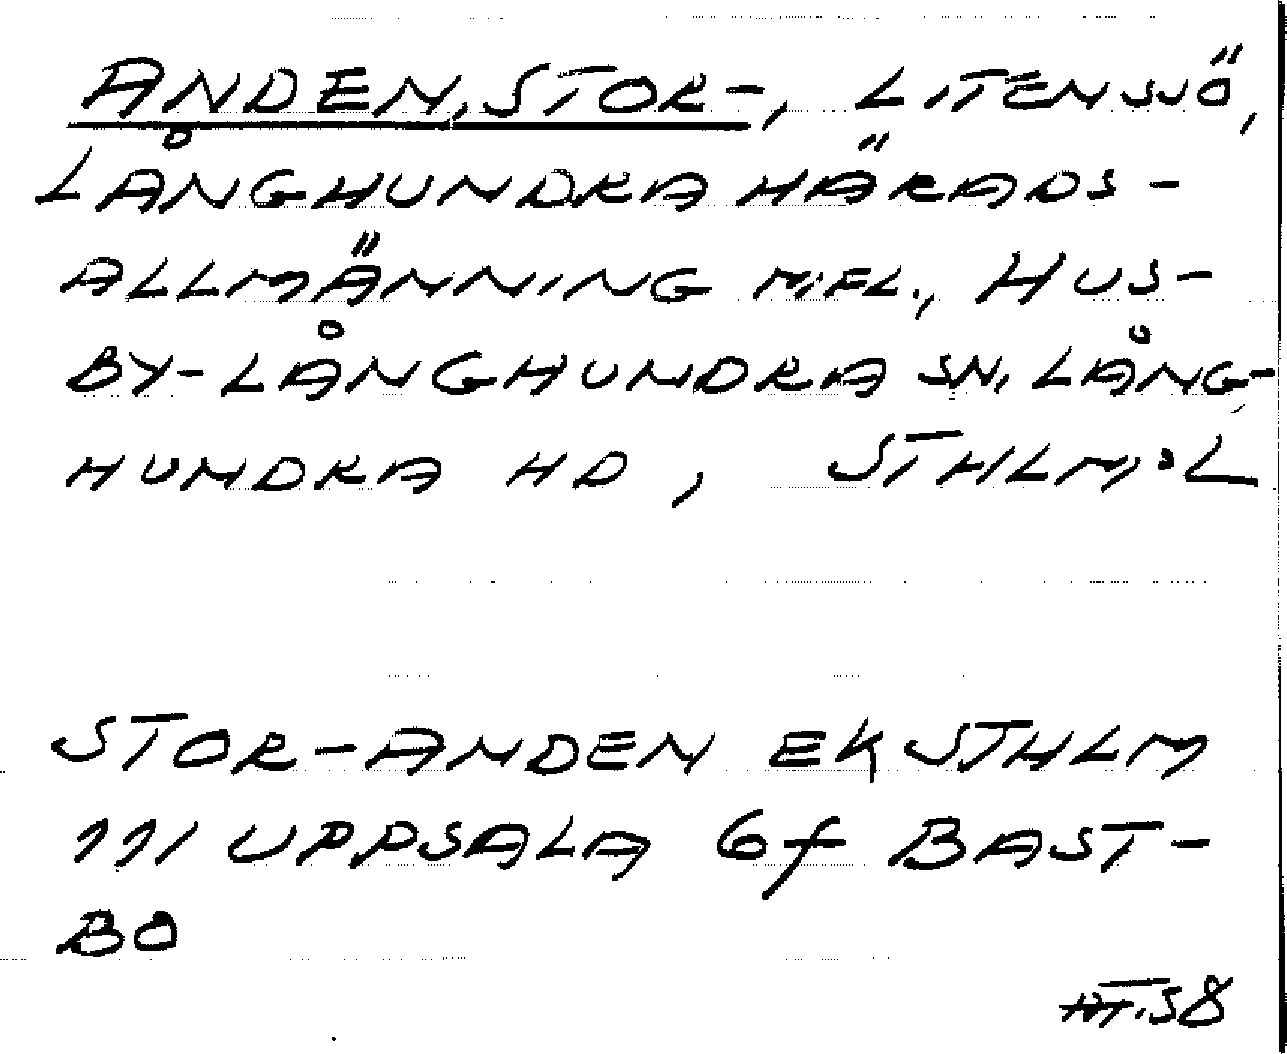 ANDEN, STOR-, LITEN SJÖ,
LÅNGHUNDRA HÄRADS-
ALLMÄNNING M.FL., HUS-
BY-LÅNGHUNDRA SN, LÅNG-
HUNDRA HD, STHLM:L
STOR-ANDEN EK STHLM
111 UPPSALA 6f BAST-
BO